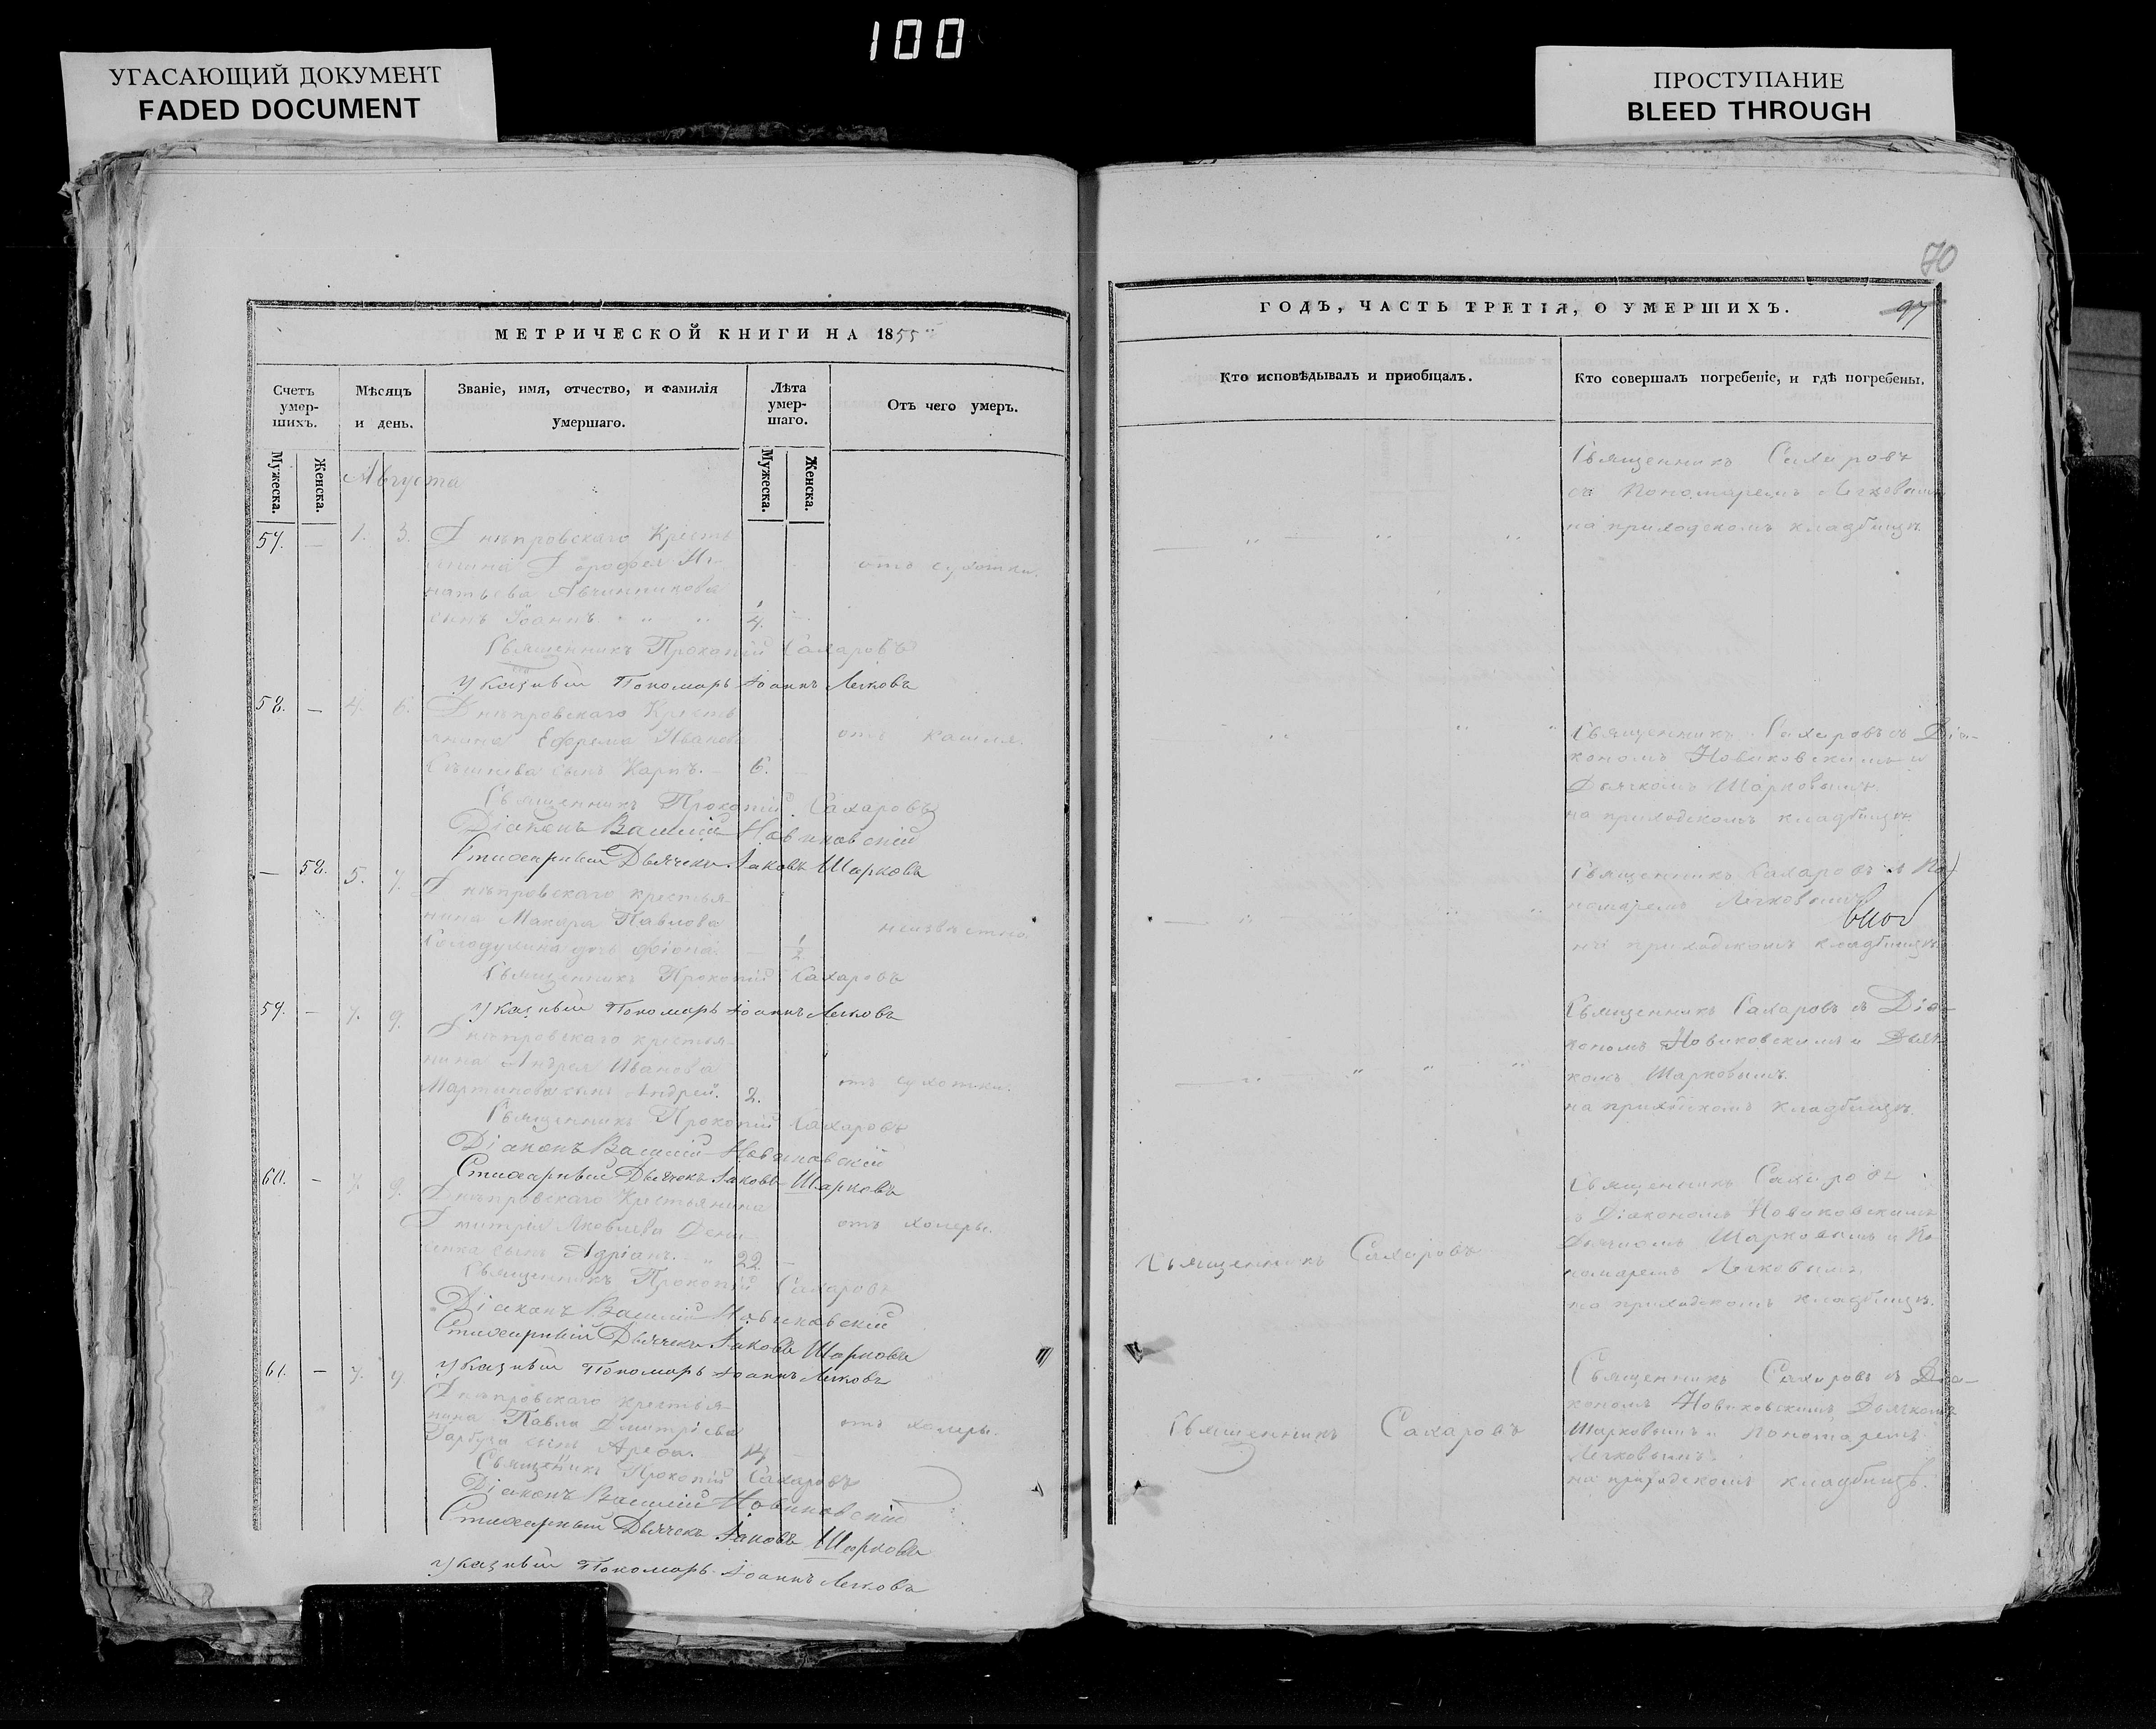 100
УГАСАЮЩИЙ ДОКУМЕНТ
FADED DOCUMENT
ПРОСТУПАНИЕ
BLEED THROUGH
МЕТРИЧЕСКОЙ КНИГИ НА 1855
Счетъ умершихъ.
Мѣсяцъ и день.
Званіе, имя, отчество, и фамилія умершаго.
Лѣта умершаго.
Отъ чего умеръ.
Мужеска.
Женска.
Мужеска.
Женска.
Августа
57. — 1. 3. Днѣпровскаго Кресть
янина Дорофея Иг-
отъ сухотки.
натьева Авчинникова
сынъ Іоаннъ 1/4.
Священникъ Прокопій Сахаровъ
Указный Пономарь Іоаннъ Легковъ
58. — 4. 6. Днѣпровскаго Кресть
янина Ефрема Иванова
отъ кашля.
сынъ Карпъ. — 6.
Священникъ Прокопій Сахаровъ
Діаконъ Василій Новиковскій
Стихарный Дьячекъ Іаковъ Шарковъ
— 58. 5. 7. Днѣпровскаго крестья-
нина Макара Павлова
неизвѣстно
дочь Фіона. 1/2
Священникъ Прокопій Сахаровъ
Указный Пономарь Іоаннъ Легковъ
59. — 7. 9.
Днѣпровскаго крестья-
нина Андрея Иванова
отъ сухотки.
Мартинова сынъ Андрей. 2.
Священникъ Прокопій Сахаровъ
Діаконъ Василій Новиковскій
Стихарный Дьячекъ Іаковъ Шарковъ
60. — 7. 9. Днѣпровскаго Крестьянина
Дмитрія Яковлева Дени-
отъ холеры.
сенка сынъ Адріанъ. 22.
Священникъ Прокопій Сахаровъ
Діаконъ Василій Новиковскій
Стихарный Дьячекъ Іаковъ Шарковъ
Указный Пономарь Іоаннъ Легковъ
61. — 7. 9
Днѣпровскаго крестья-
нина Павла Дмитріева
отъ холеры.
Гарбуза сынъ Арефа. 14
Священникъ Прокопій Сахаровъ
Діаконъ Василій Новиковскій
Стихарный Дьячекъ Іаковъ Шарковъ
Указный Пономарь Іоаннъ Легковъ
70
ГОДЪ, ЧАСТЬ ТРЕТІЯ, О УМЕРШИХЪ.
97
Кто исповѣдывалъ и пріобщалъ.
Кто совершалъ погребеніе, и гдѣ погребены.
Священникъ Сахаровъ
съ Пономаремъ Легковымъ
на приходскомъ кладбищѣ.
Священникъ Сахаровъ съ Діа-
кономъ Новиковскимъ и
Дьячкомъ Шарковымъ.
на приходскомъ кладбищѣ
Священникъ Сахаровъ съ По
номаремъ Легковымъ
на приходскомъ кладбищѣ
Священникъ Сахаровъ съ Діа-
кономъ Новиковскимъ и Дьяч
комъ Шарковымъ.
на приходскомъ кладбищѣ.
Священникъ Сахаровъ
Священникъ Сахаровъ
съ Діакономъ Новиковскимъ
Дьячкомъ Шарковымъ и По
номаремъ Легковымъ.
на приходскомъ кладбищѣ.
Священникъ Сахаровъ
Священникъ Сахаровъ съ Діа-
кономъ Новиковскимъ, Дьячкомъ
Шарковымъ и Пономаремъ
Легковымъ.
на приходскомъ кладбищѣ.